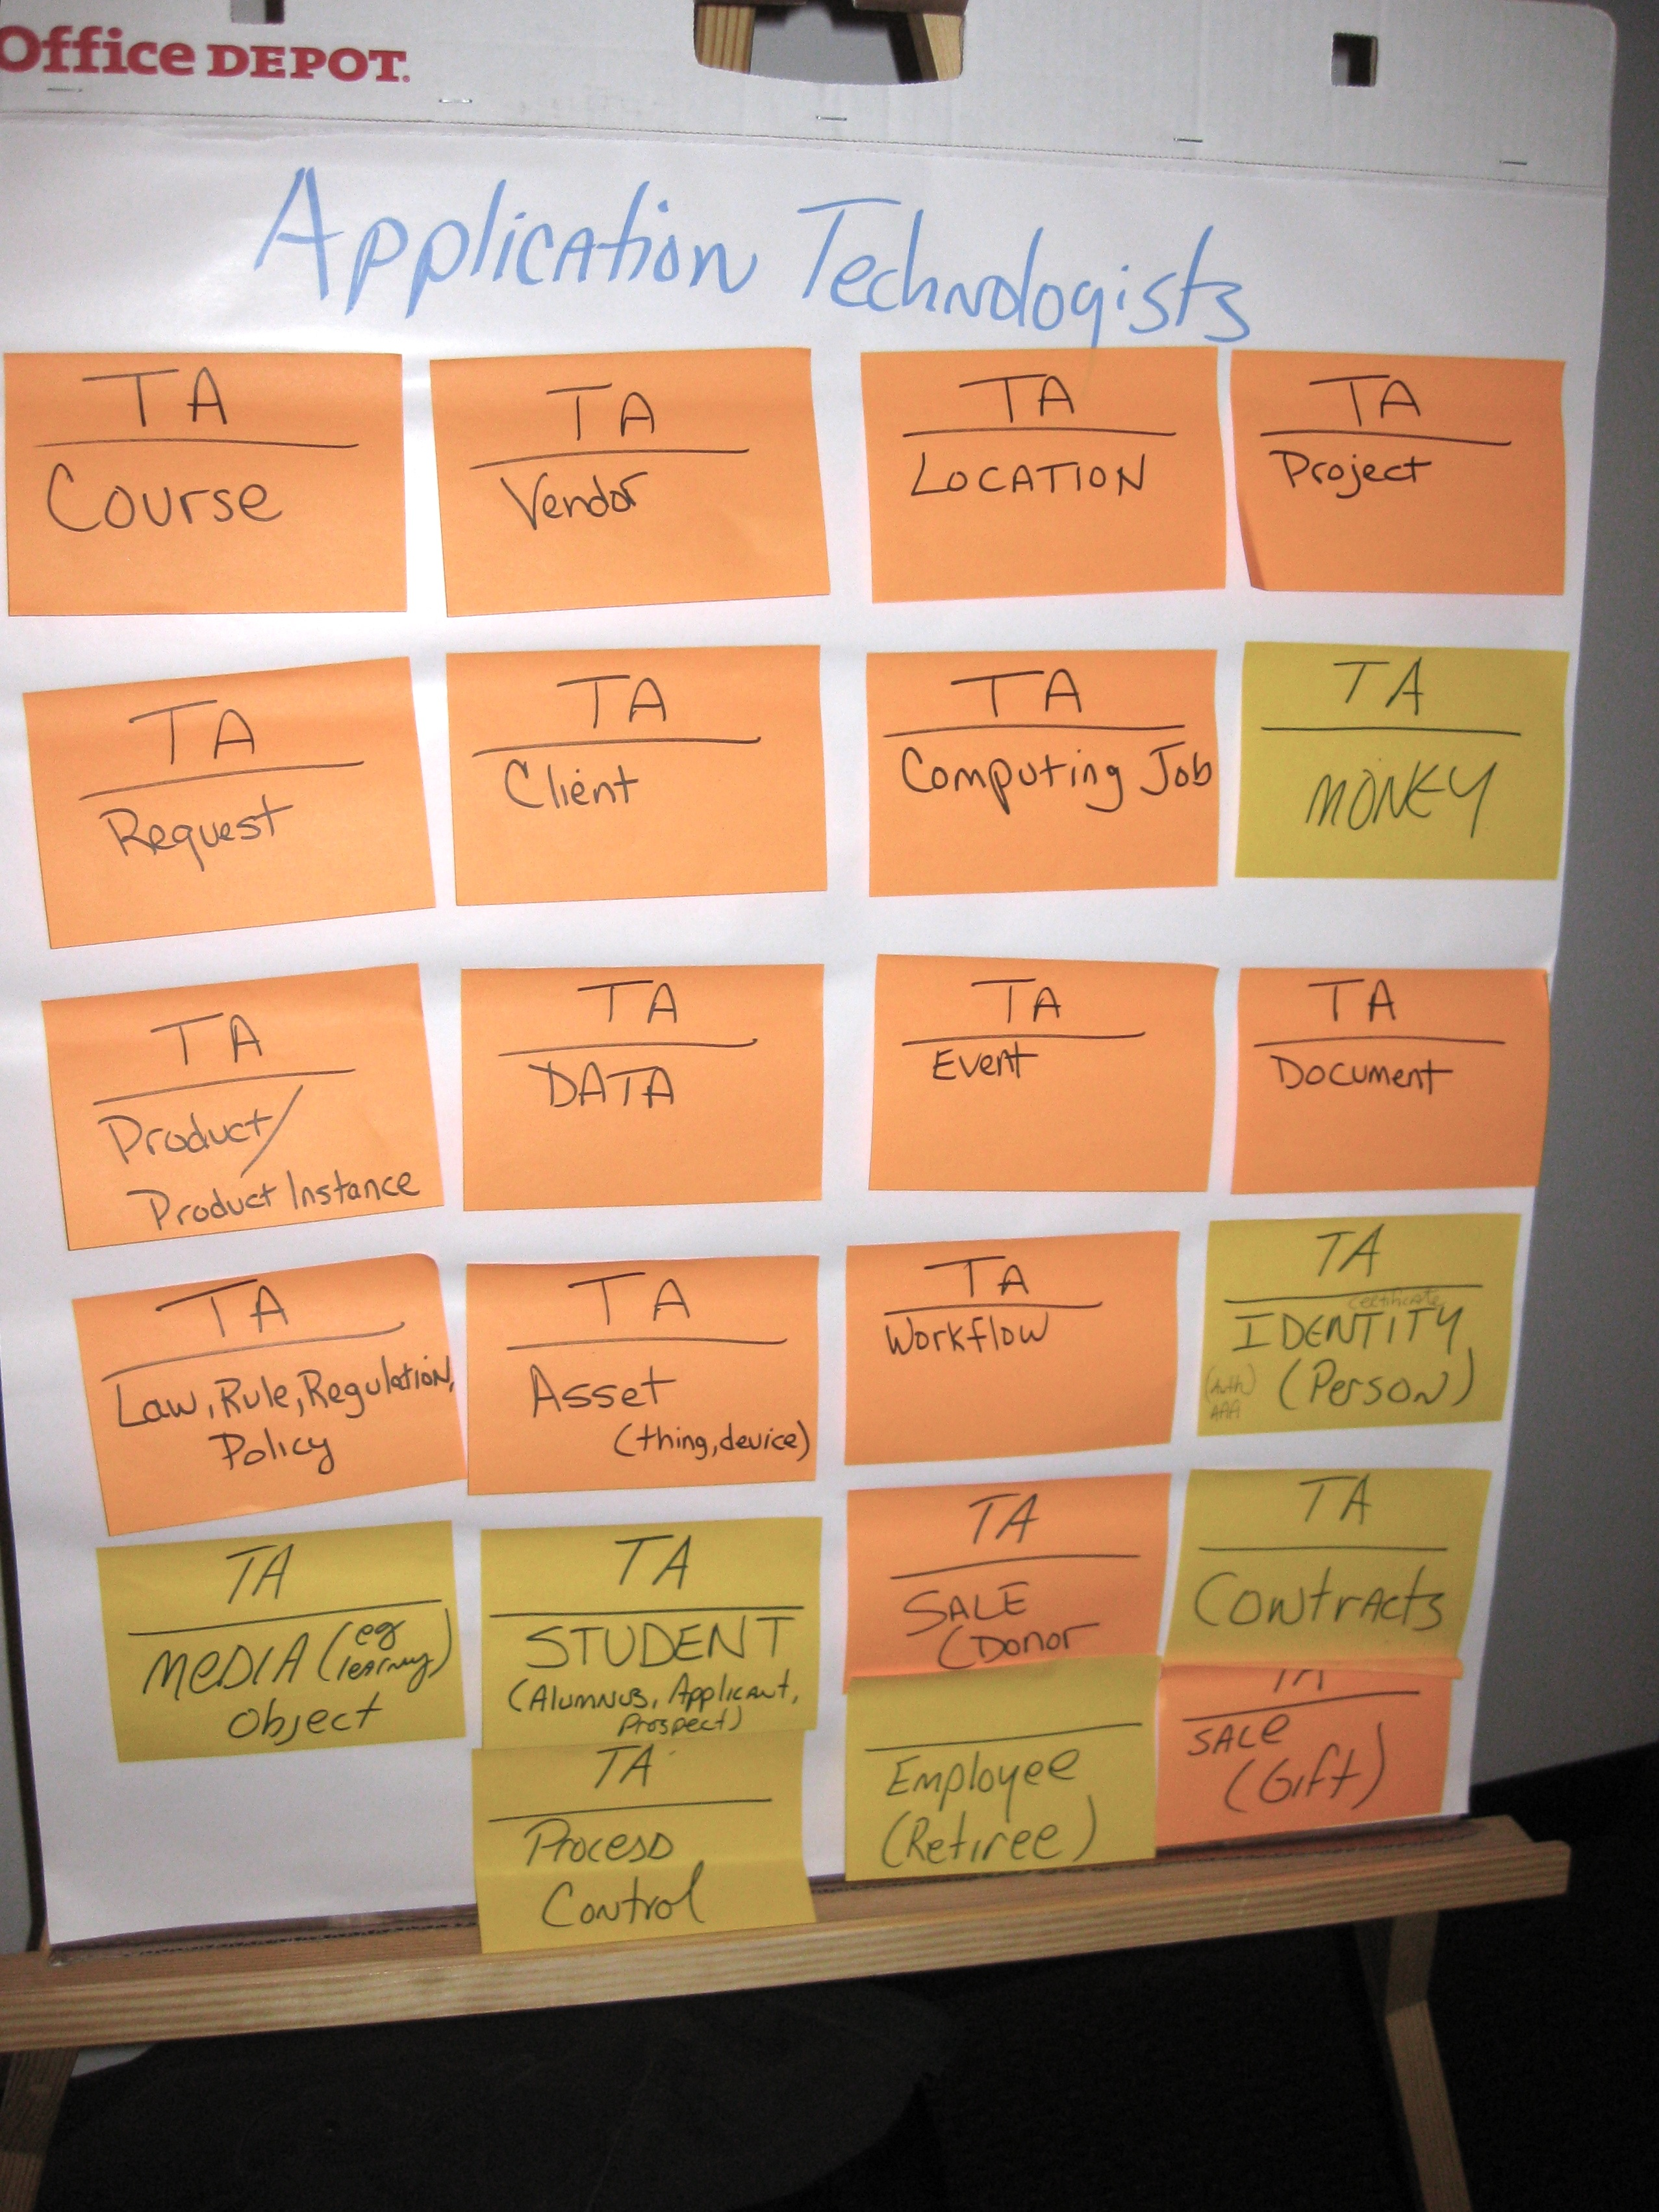 Office DEPOT.
Application Technologists
TA
Course
TA
Vendor
TA
LOCATION
TA
Project
TA
Request
TA
Client
TA
Computing Job
TA
MONEY
TA
Product/
Product Instance
TA
DATA
TA
Event
TA
Document
TA
Law, Rule, Regulation,
Policy
TA
Asset
(thing, device)
TA
Workflow
TA
certificate
IDENTITY
(Auth) (Person)
AAA
TA
MEDIA (eg learning)
Object
TA
STUDENT
(Alumnus, Applicant,
Prospect)
TA
SALE
(Donor
TA
Contracts
TA
Process
Control
Employee
(Retiree)
TA
SALE
(Gift)